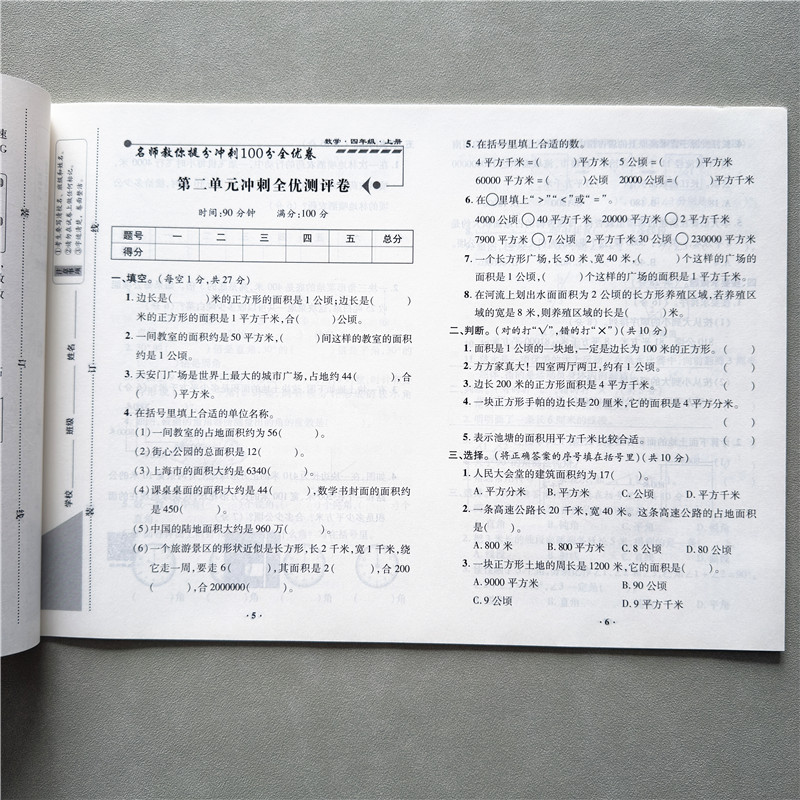 速
G
①学生要写清校名、班级和姓名。
②请勿在试卷上做任何标记。
③字迹清楚，卷面整洁。
注意事项
学校
班级
姓名
装
订
线
答
封
数学·四年级·上册
名师教你提分冲刺100分全优卷
第二单元冲刺全优测评卷
时间:90分钟 满分:100分
题号 一 二 三 四 五 总分
得分
一、填空。(每空1分,共27分)
1. 边长是( )米的正方形的面积是1公顷;边长是( )
米的正方形的面积是1平方千米,合( )公顷。
2. 一间教室的面积约是50平方米,( )间这样的教室的面积
约是1公顷。
3. 天安门广场是世界上最大的城市广场,占地约44( ),合
( )平方米。
4. 在括号里填上合适的单位名称。
(1)一间教室的占地面积约为56( )。
(2)街心公园的总面积是12( )。
(3)上海市的面积大约是6340( )。
(4)课桌桌面的面积大约是44( ),数学书封面的面积约
是450( )。
(5)中国的陆地面积大约是960万( )。
(6)一个旅游景区的形状近似是长方形,长2千米,宽1千米,绕
它走一周,要走6( ),其面积是2( ),合200
( ),合2000000( )。
·5·
5. 在括号里填上合适的数。
4平方千米=( )平方米 5公顷=( )平方米
60000平方米=( )公顷 20000公顷=( )平方千米
6. 在○里填上“>”“<”或“=”。
4000公顷○40平方千米 20000平方米○2平方千米
7900平方米○7公顷 2平方千米30公顷○230000平方米
7. 一个长方形广场,长50米,宽40米,( )个这样的广场的
面积是1公顷,( )个这样的广场的面积是1平方千米。
8. 在河流上划出水面面积为2公顷的长方形养殖区域,若养殖区
域的宽是8米,则养殖区域的长是( )米。
二、判断。(对的打“√”,错的打“×”)(共10分)
1. 面积是1公顷的一块地,一定是边长为100米的正方形。( )
2. 方方家真大!四室两厅两卫,约有1公顷。( )
3. 边长200米的正方形面积是4平方千米。( )
4. 一块正方形手帕的边长是20厘米,它的面积是4平方分米。
( )
5. 表示池塘的面积用平方千米比较合适。( )
三、选择。(将正确答案的序号填在括号里)(共10分)
1. 人民大会堂的建筑面积约为17( )。
A. 平方分米 B. 平方米 C. 公顷 D. 平方千米
2. 一条高速公路长20千米,宽40米。这条高速公路的占地面积
是( )。
A. 800米 B. 800平方米 C. 8公顷 D. 80公顷
3. 一块正方形土地的周长是1200米,它的面积是( )。
A. 9000平方米 B. 90公顷
C. 9公顷 D. 9平方千米
·6·